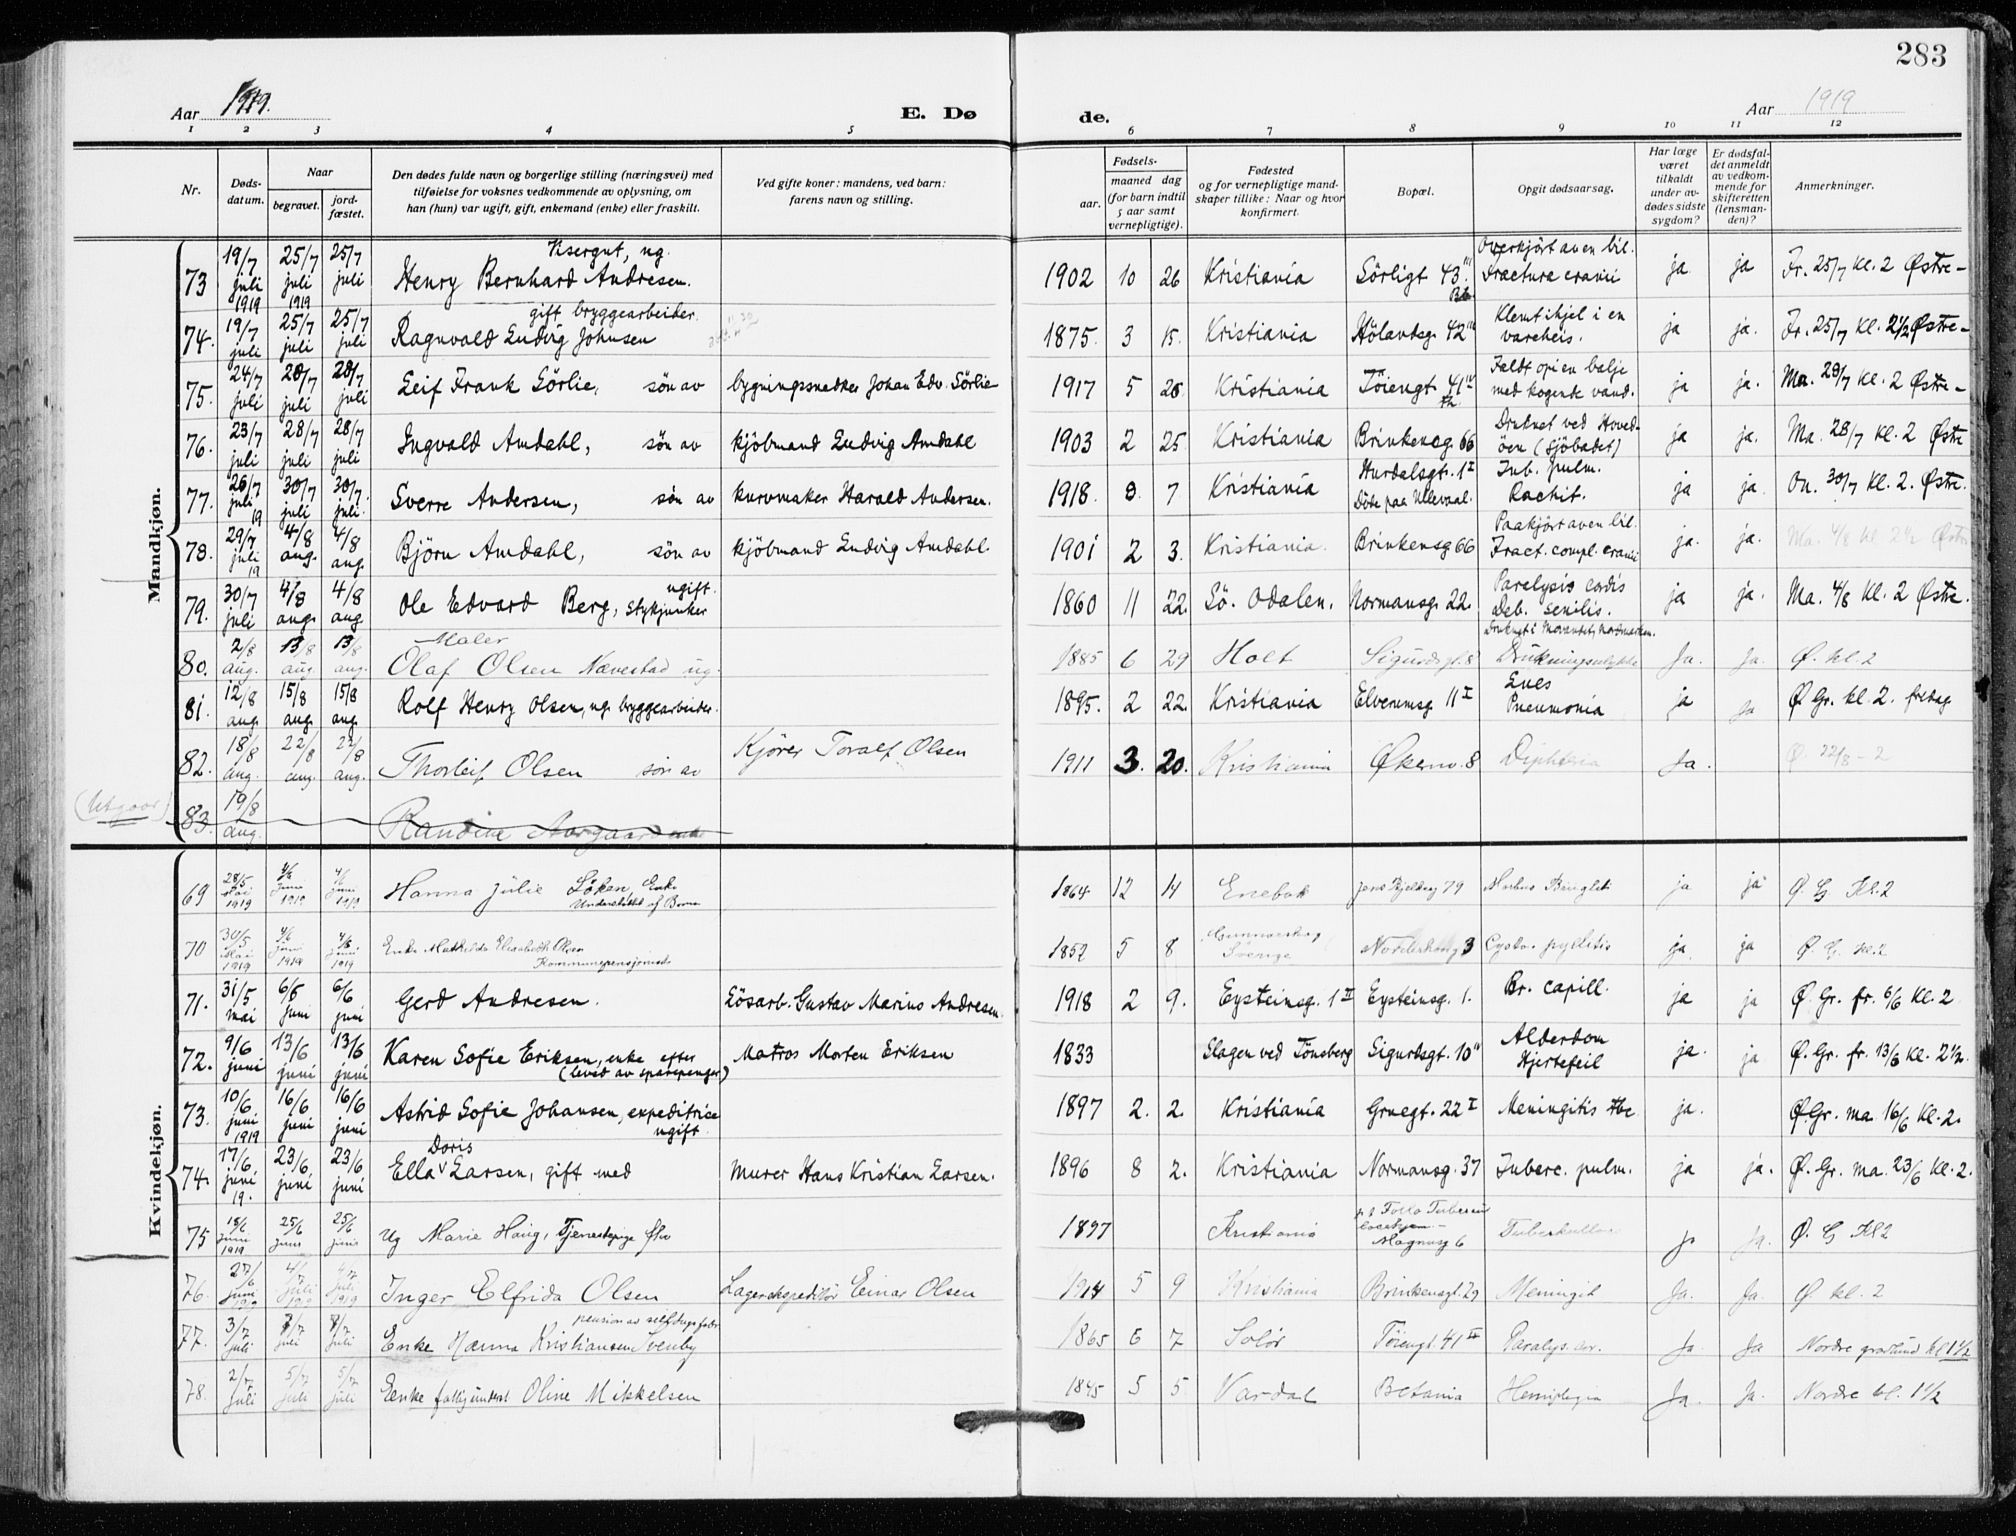 283
Aar 1919.
E. Dø
de.
Aar 1919
1 2 3 4 5 6 7 8 9 10 11 12
Nr. Døds-datum. Naar begravet. jord-fæstet. Den dødes fulde navn og borgerlige stilling (næringsvei) med tilføielse for voksnes vedkommende av oplysning, om han (hun) var ugift, gift, enkemand (enke) eller fraskilt. Ved gifte koner: mandens, ved barn: farens navn og stilling. Fødsels- aar. maaned dag (for barn indtil 5 aar samt vernepligtige). Fødested og for vernepligtige mandskaper tillike: Naar og hvor konfirmert. Bopæl. Opgit dødsaarsag. Har læge været tilkaldt under avdødes sidste sygdom? Er dødsfaldet anmeldt av vedkommende for skifteretten (lensmanden)? Anmerkninger.
Mandkjøn.
73 19/7 juli 1919 25/7 juli 1919 25/7 juli Visergut, ug. Henry Bernhard Andresen. 1902 10 26 Kristiania Sörligt 43 Overkjört av en bil. Fractura cranii ja ja Fr. 25/7 kl. 2 Østre-
74. 19/7 juli 25/7 juli 25/7 juli gift bryggearbeider. Ragnvald Ludvig Johnsen 1875. 3 15. Kristiania Hölandsg. 42 Klemt ihjel i en vareheis. ja ja. Fr. 25/7 kl. 2 1/2 Østre-
75. 24/7 juli 28/7 juli 28/7 juli Leif Frank Sörlie, sön av bygningssnedker Johan Edv. Sörlie 1917 5 26 Kristiania Töiengt. 41 Faldt opi en balje med kogende vand. ja ja. Ma. 28/7 kl. 2 Østre-
76. 23/7 juli 28/7 juli 28/7 juli Ingvald Amdahl, sön av kjöbmand Ludvig Amdahl 1903 2 25 Kristiania Brinkensg. 66 Druknet ved Hoved-öen (Sjöbadet) ja ja. Ma. 28/7 kl. 2 Østre
77. 26/7 juli 19 30/7 juli 30/7 juli. Sverre Andersen, sön av kurvmaker Harald Andersen. 1918. 7 Kristiania Hurdalsgt. 1 I Döde paa Ullevaal. Tub. pulm. Rachit. ja ja. On. 30/7 kl. 2. Østre.
78. 29/7 juli 19 4/8 aug. 4/8 aug. Björn Amdahl, sön av kjöbmand Ludvig Amdahl. 1901 2 3. Kristiania. Brinkensg 66 Paakjört av en bil. Fract. compl. cranii ja. ja. Ma. 4/8 kl 2 1/2 Østre
79. 30/7 juli 4/8 aug. 4/8 aug ugift. Ole Edvard Berg, Stykjunker 1860 11 22. Sö. Odalen. Normansg. 22. Paralysis cordis Deb. senilis. ja ja. Ma. 4/8 kl. 2 Østre.
80. 2/8 aug. 13/8 aug. 13/8 aug. Maler Olaf Olsen Nævestad ug. 1885 6 29 Holt Sigurdsgt. 8 Druknet i Nordmarken. Drukningsulykke Ja. Ja. Ø. kl. 2
81. 12/8 aug. 15/8 aug. 15/8 aug. Rolf Henry Olsen, ug. bryggearbeider. 1895. 2 22. Kristiania Elverumsg. 11 I Lues Pneumonia ja ja Ø. Gr. kl. 2. fredag
82. 18/8 aug. 22/8 aug. 22/8 aug. Thorleif Olsen sön av Kjörer Toralf Olsen 1911 3. 20. Kristiania Økernv. 8 Diphteria Ja. Ø. 22/8 - 2
(Utgaar) 83. 19/8 aug. Randine Aargaard enke
Kvindekjøn.
69 28/5 Mai 1919 4/6 juni 1919 4/6 juni 1919 Hanna Julie Löken, Enke Understöttet af Barn 1864 12 14 Enebak Jens Bjelkesg 79 Morbus Brightii ja ja Ø. G Kl. 2
70 30/5 Mai 1919 4/6 juni 1919 4/6 juni 1919 Enke Mathilde Elisabeth Olsen Kommunepensjonist 1852 5 8 Gunnarskog Sverige 3 Cysto-pyelitis ja. ja Ø. G. kl. 2
71. 31/5 mai 6/6 juni 6/6 juni Gerd Andresen. Lösarb. Gustav Marius Andresen. 1918 2 9. Eysteinsg. 1 II Eysteinsg. 1. Br. capill. ja ja Ø. Gr. fr. 6/6 kl. 2
72. 9/6 juni 13/6 juni 13/6 juni Karen Sofie Eriksen, enke efter (levéd av sparepenger) Matros Morten Eriksen 1833 Slagen ved Tönsberg Sigurdsgt. 10 Alderdom Hjertefeil ja. ja Ø. Gr. fr. 13/6 kl. 2 1/2.
73. 10/6 juni 1919 16/6 juni 16/6 juni Astrid Sofie Johansen, expeditrice ugift. 1897 2. 2. Kristiania Gruegt. 22 I Meningitis tbc. ja. Ø. Gr. ma. 16/6 kl. 2.
74. 17/6 juni 19. 23/6 juni 23/6 juni Ella Doris Larsen, gift med Murer Hans Kristian Larsen. 1896 8 2. Kristiania Normansg. 37 Tuberc. pulm. ja ja. Ø. Gr. ma. 23/6 kl. 2.
75 18/6 juni 1919 25/6 juni 25/6 juni Ug Marie Haug, Tjenestepige 1897 Kristiania Magnusg 6 Tuberkulose ja Ja. Ø. G Kl 2
76. 27/6 juni 1919 4/7 juli 1919 4/7 juli 1919 Inger Elfrida Olsen Lagerekspeditör Einar Olsen 1914 5 9 Kristiania Brinkensgt. 29 Meningit Ja. Ja. Ø kl. 2
77. 3/7 juli 7/7 juli 7/7 juli Enke Hanna Kristiansen Svenby 1865 6 7 Solör Töiengt. 41 II Paralys. cor. Ja Ja Nordre gravlund kl 1 1/2
78. 2/7 juli 5/7 juli 5/7 juli Enke Oline Mikkelsen 1845 5 5 Vardal Betania Hemiplegia Ja. Ja. Nordre kl. 1 1/2